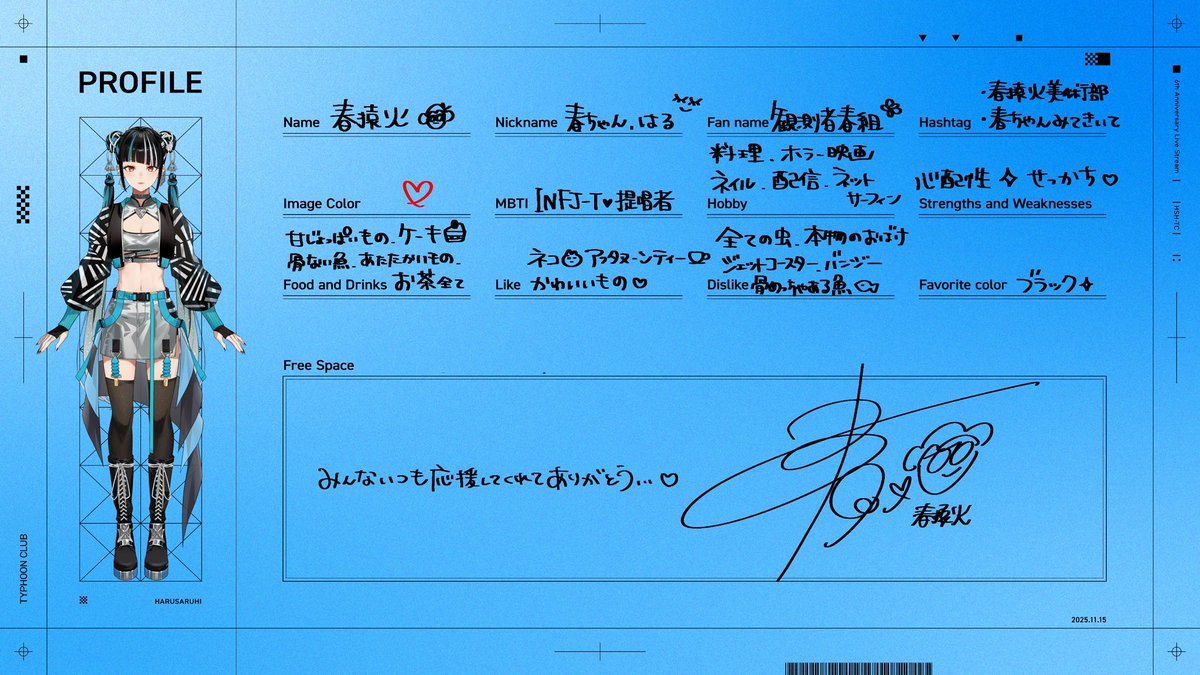 PROFILE
Name 春猿火
Nickname 春ちゃん、はる
Fan name 観測者春組
・春猿火美術部
Hashtag ・春ちゃんみてきいて
Image Color
MBTI INFJ-T♥提唱者
料理、ホラー映画
ネイル、配信、ネット
サーフィン
Hobby
心配性 せっかち♡
Strengths and Weaknesses
甘じょっぱいもの、ケーキ
骨ない魚、あたたかいもの、
Food and Drinks お茶全て
ネコ アッタヌーンティー
Like かわいいもの♡
全ての虫、本物のおばけ
ジェットコースター、バンジー
Dislike 骨めっちゃある魚、
Favorite color ブラック
Free Space
みんないつも応援してくれてありがとう...♡
春猿火
TYPHOON CLUB
HARUSARUHI
6th Anniversary Live Stream
HSH-TC
2025.11.15